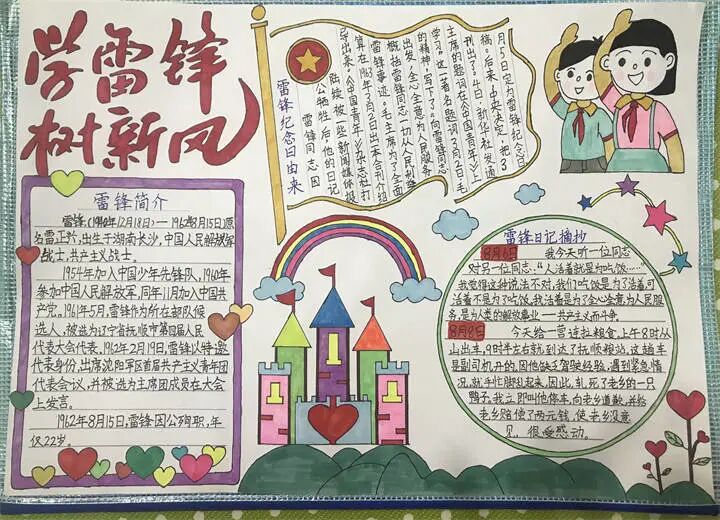 学雷锋
树新风
雷锋简介
雷锋(1940年12月18日)—1962年8月15日原
名雷正兴,出生于湖南长沙,中国人民解放军
战士,共产主义战士。
1954年加入中国少年先锋队,1960年
参加中国人民解放军,同年11月加入中国共
产党。1961年5月,雷锋作为所在部队候
选人,被选为辽宁省抚顺市第四届人民
代表大会代表。1962年2月19日,雷锋以特邀
代表身份,出席沈阳军区首届共产主义青年团
代表会议,并被选为主席团成员在大会
上发言。
1962年8月15日,雷锋因公殉职,年
仅22岁。
雷锋纪念日由来
雷锋同志因
公牺牲后他的日记
陆续被一些新闻媒体报
导出来。《中国青年》杂志社打
算在1963年3月2日出来专刊介绍
雷锋事迹。毛主席为了全面
概括雷锋同志一切从人民利益
出发,全心全意为人民服务
的精神,写下了"向雷锋同志
学习"这一著名题词。3月2日毛
主席的题词在《中国青年》杂志
刊出了。4日,新华社发通
稿。后来,中央决定,把3
月5日定为雷锋纪念日
雷锋日记摘抄
8月6日 我今天听一位同志
对另一位同志:"人活着就是为吃饭……"
我觉得这种说法不对,我们吃饭是为了活着,可
活着不是为了吃饭。我活着是为了全心全意为人民服
务,是为人类的解放事业——共产主义而斗争。
8月8日 今天给一营连拉粮食,上午8时从
山出车,9时半左右就到达了抚顺粮站。这趟车
是副司机开的。因他缺乏驾驶经验,遇到紧急情
况,就手忙脚乱起来,因此,轧死了老乡的一只
鸭子,我立即叫他停车,向老乡道歉,并给
老乡赔偿了两元钱,使老乡没意
见,很受感动。